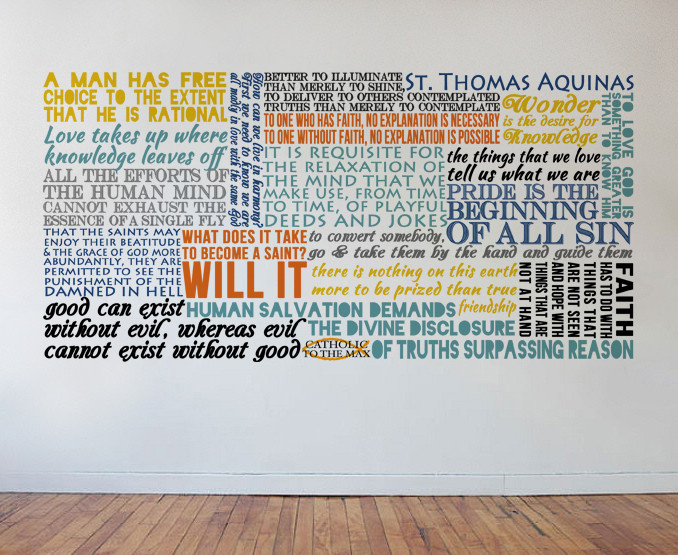 A MAN HAS FREE
CHOICE TO THE EXTENT
THAT HE IS RATIONAL
Love takes up where
knowledge leaves off
ALL THE EFFORTS OF
THE HUMAN MIND
CANNOT EXHAUST THE
ESSENCE OF A SINGLE FLY
How can we live in harmony?
First we need to know we are
all madly in love with the same God
BETTER TO ILLUMINATE
THAN MERELY TO SHINE,
TO DELIVER TO OTHERS CONTEMPLATED
TRUTHS THAN MERELY TO CONTEMPLATE
ST. THOMAS AQUINAS
TO ONE WHO HAS FAITH, NO EXPLANATION IS NECESSARY
TO ONE WITHOUT FAITH, NO EXPLANATION IS POSSIBLE
Wonder
is the desire for
Knowledge
TO LOVE GOD IS
SOMETHING GREATER
THAN TO KNOW HIM
IT IS REQUISITE FOR
THE RELAXATION OF
THE MIND THAT WE
MAKE USE, FROM TIME
TO TIME, OF PLAYFUL
DEEDS AND JOKES
the things that we love
tell us what we are
PRIDE IS THE
BEGINNING
OF ALL SIN
THAT THE SAINTS MAY
ENJOY THEIR BEATITUDE
& THE GRACE OF GOD MORE
ABUNDANTLY, THEY ARE
PERMITTED TO SEE THE
PUNISHMENT OF THE
DAMNED IN HELL
WHAT DOES IT TAKE
TO BECOME A SAINT?
WILL IT
to convert somebody,
go & take them by the hand and guide them
there is nothing on this earth
more to be prized than true
friendship
FAITH
HAS TO DO WITH
THINGS THAT
ARE NOT SEEN
AND HOPE WITH
THINGS THAT ARE
NOT AT HAND
good can exist
without evil, whereas evil
cannot exist without good
HUMAN SALVATION DEMANDS
THE DIVINE DISCLOSURE
OF TRUTHS SURPASSING REASON
CATHOLIC
TO THE MAX